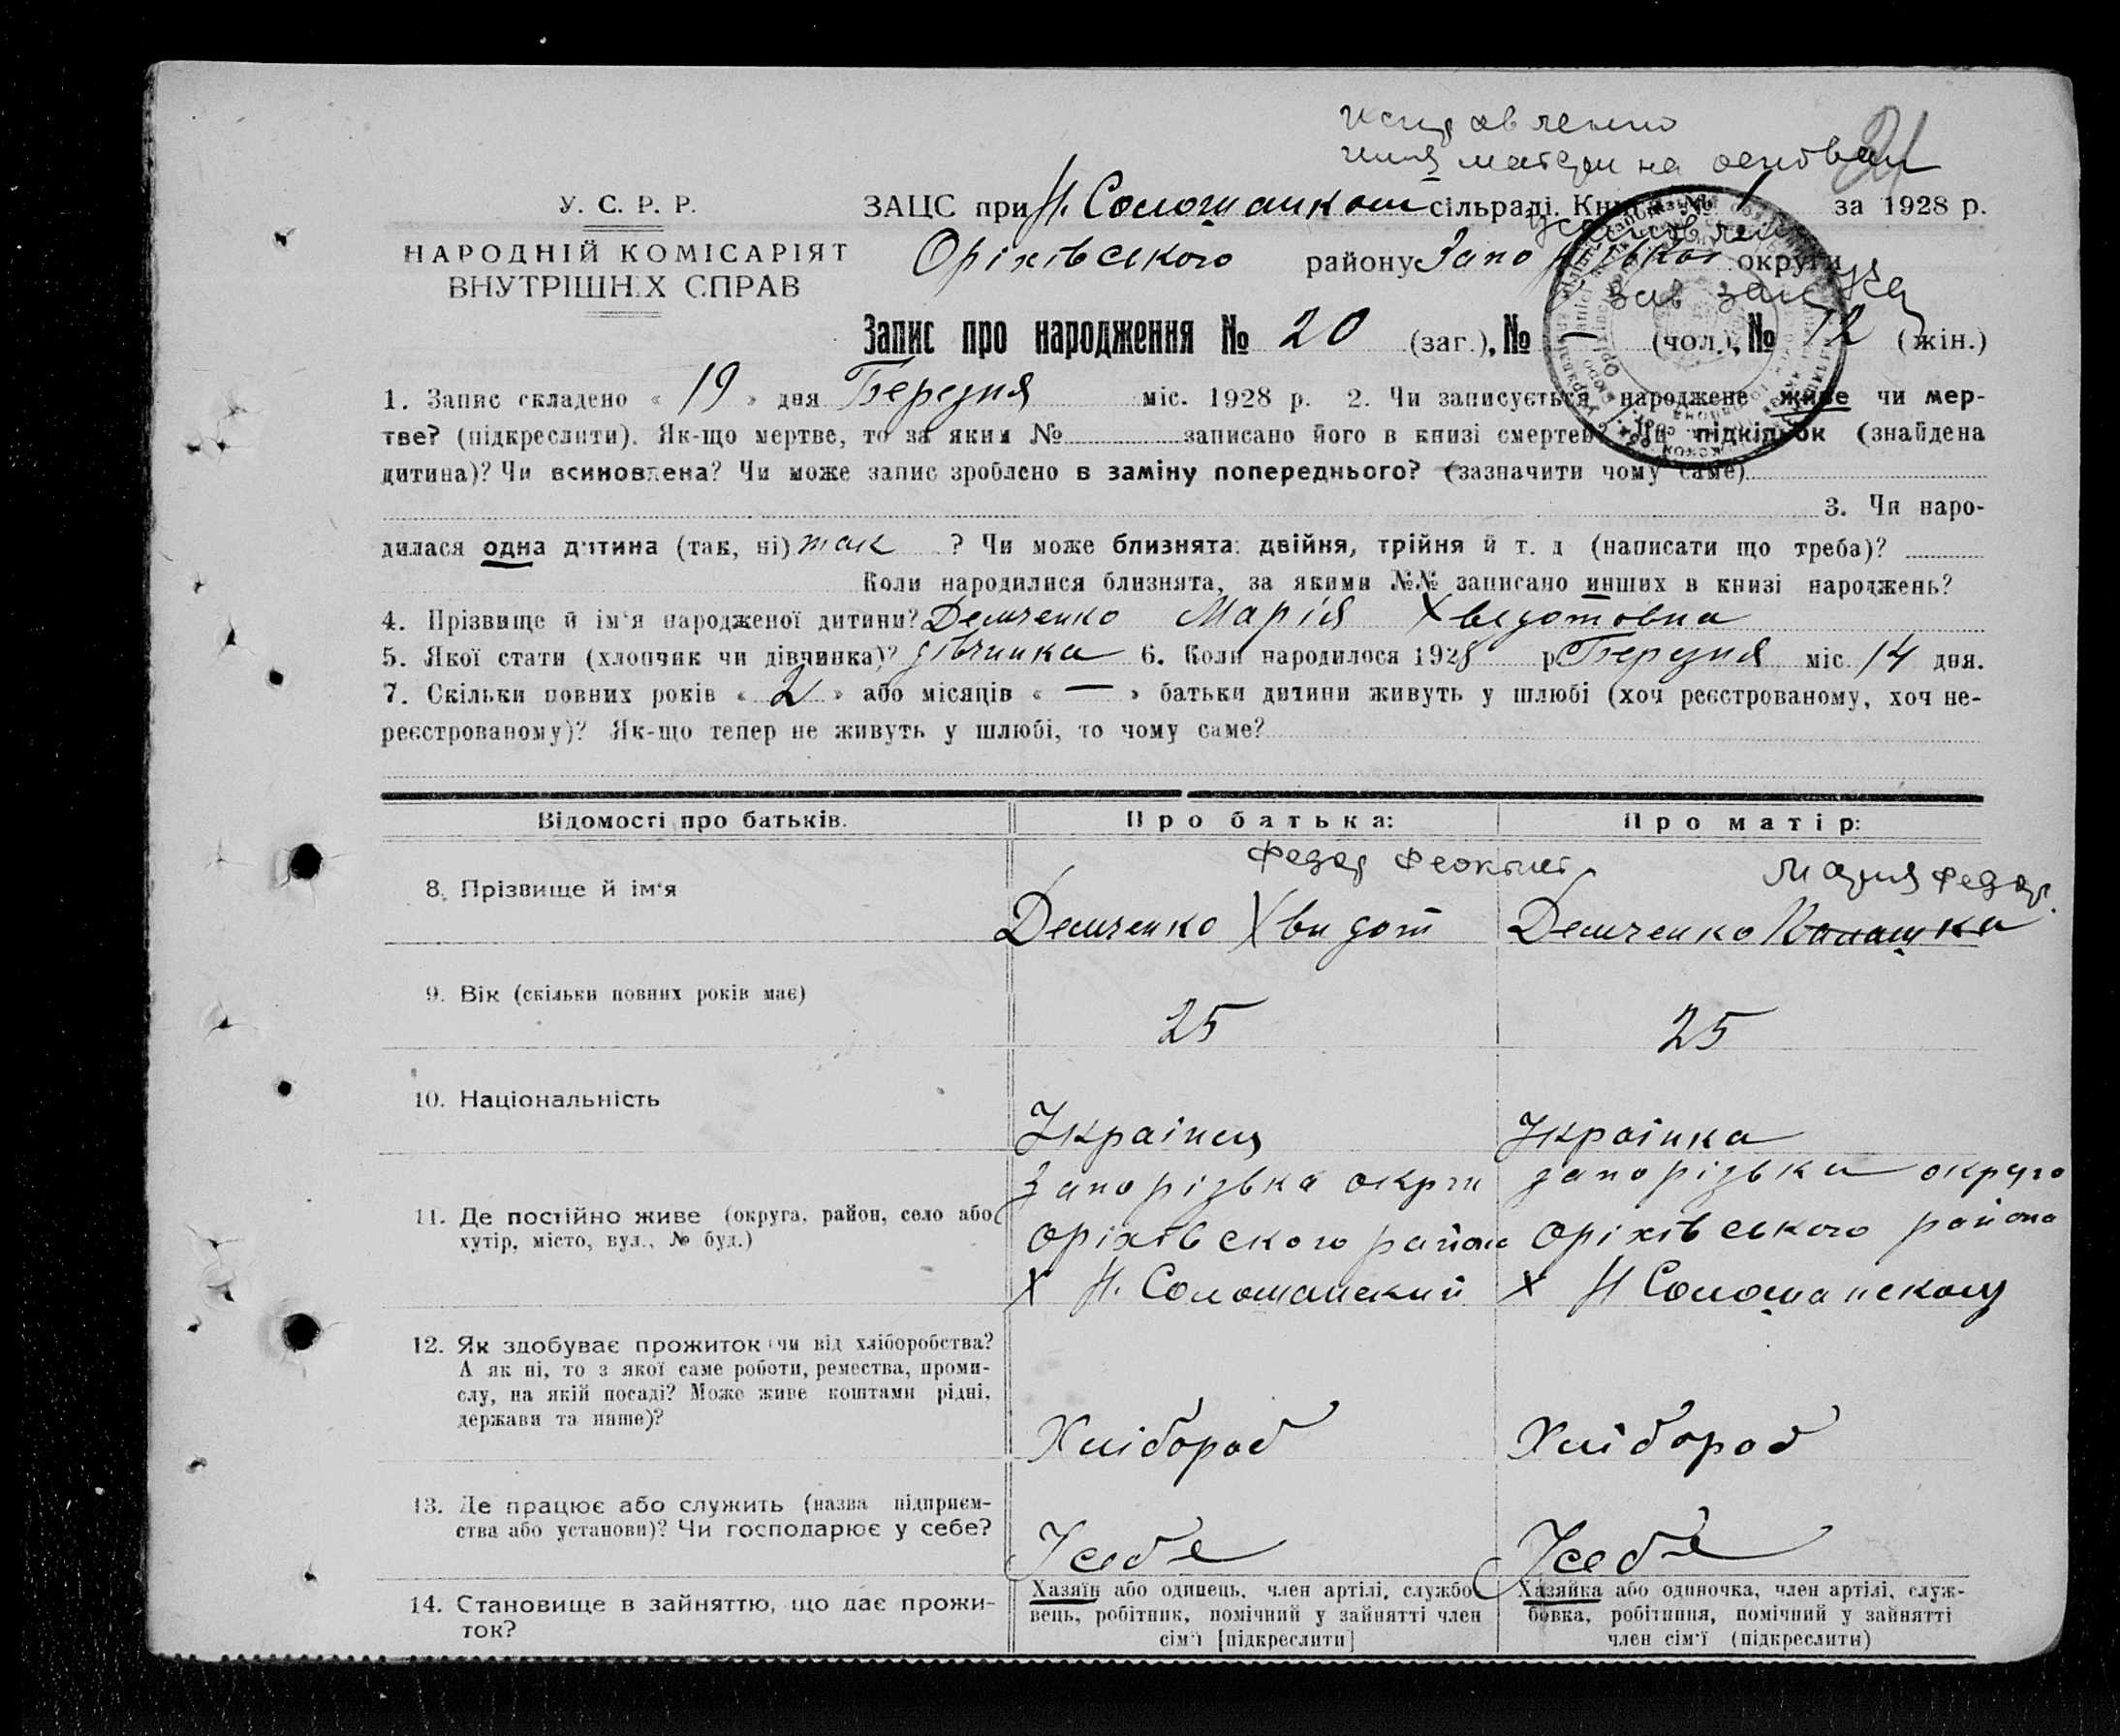 исправленно
имя матери на основан
21
У. С. Р. Р.
НАРОДНІЙ КОМІСАРІЯТ
ВНУТРІШНІХ СПРАВ
ЗАЦС при Н. Солошанком сільраді. Книга № 1 за 1928 р.
Оріхівського району Запорізької округи
зав загс
Запис про народження № 20 (заг.), № — (чол.), № 12 (жін.)
1. Запис складено « 19 » дня Березня міс. 1928 р. 2. Чи записується народжене живе чи мер-
тве? (підкреслити). Як-що мертве, то за яким № записано його в книзі смертей? Чи підкідьок (знайдена
дитина)? Чи всиновлена? Чи може запис зроблено в заміну попереднього? (зазначити чому саме)
3. Чи наро-
дилася одна дитина (так, ні) так ? Чи може близнята: двійня, трійня й т. д (написати що треба)?
Коли народилися близнята, за якими №№ записано инших в книзі народжень?
4. Прізвище й ім'я народженої дитини? Демченко Марія Хведотовна
5. Якої стати (хлопчик чи дівчинка)? дівчинка 6. Коли народилося 1928 р Березня міс. 14 дня.
7. Скільки повних років « 2 » або місяців « — » батьки дитини живуть у шлюбі (хоч реєстрованому, хоч не-
реєстрованому)? Як-що тепер не живуть у шлюбі, то чому саме?
Відомості про батьків. Про батька: Про матір:
Федор Феокт Мария Федор.
8. Прізвище й ім'я Демченко Хведот Демченко
9. Вік (скільки повних років має) 25 25
10. Національність Українец Українка
11. Де постійно живе (округа, район, село або
хутір, місто, вул., № буд.)
Запорізька округи запорізька округа
Оріхівского району Оріхівського района
Х Н. Солошанский Х Н Солошанскому
12. Як здобуває прожиток: чи від хліборобства?
А як ні, то з якої саме роботи, ремества, проми-
слу, на якій посаді? Може живе коштами рідні,
держави та инше)?
Хлібороб Хлібороб
13. Де працює або служить (назва підприєм-
ства або установи)? Чи господарює у себе?
У себе У себе
14. Становище в зайняттю, що дає прожи-
ток?
Хазяїн або одинець, член артілі, службо-
вець, робітник, помічний у зайнятті член
сім'ї [підкреслити]
Хазяйка або одиночка, член артілі, служ-
бовка, робітниця, помічний у зайнятті
член сім'ї (підкреслити)